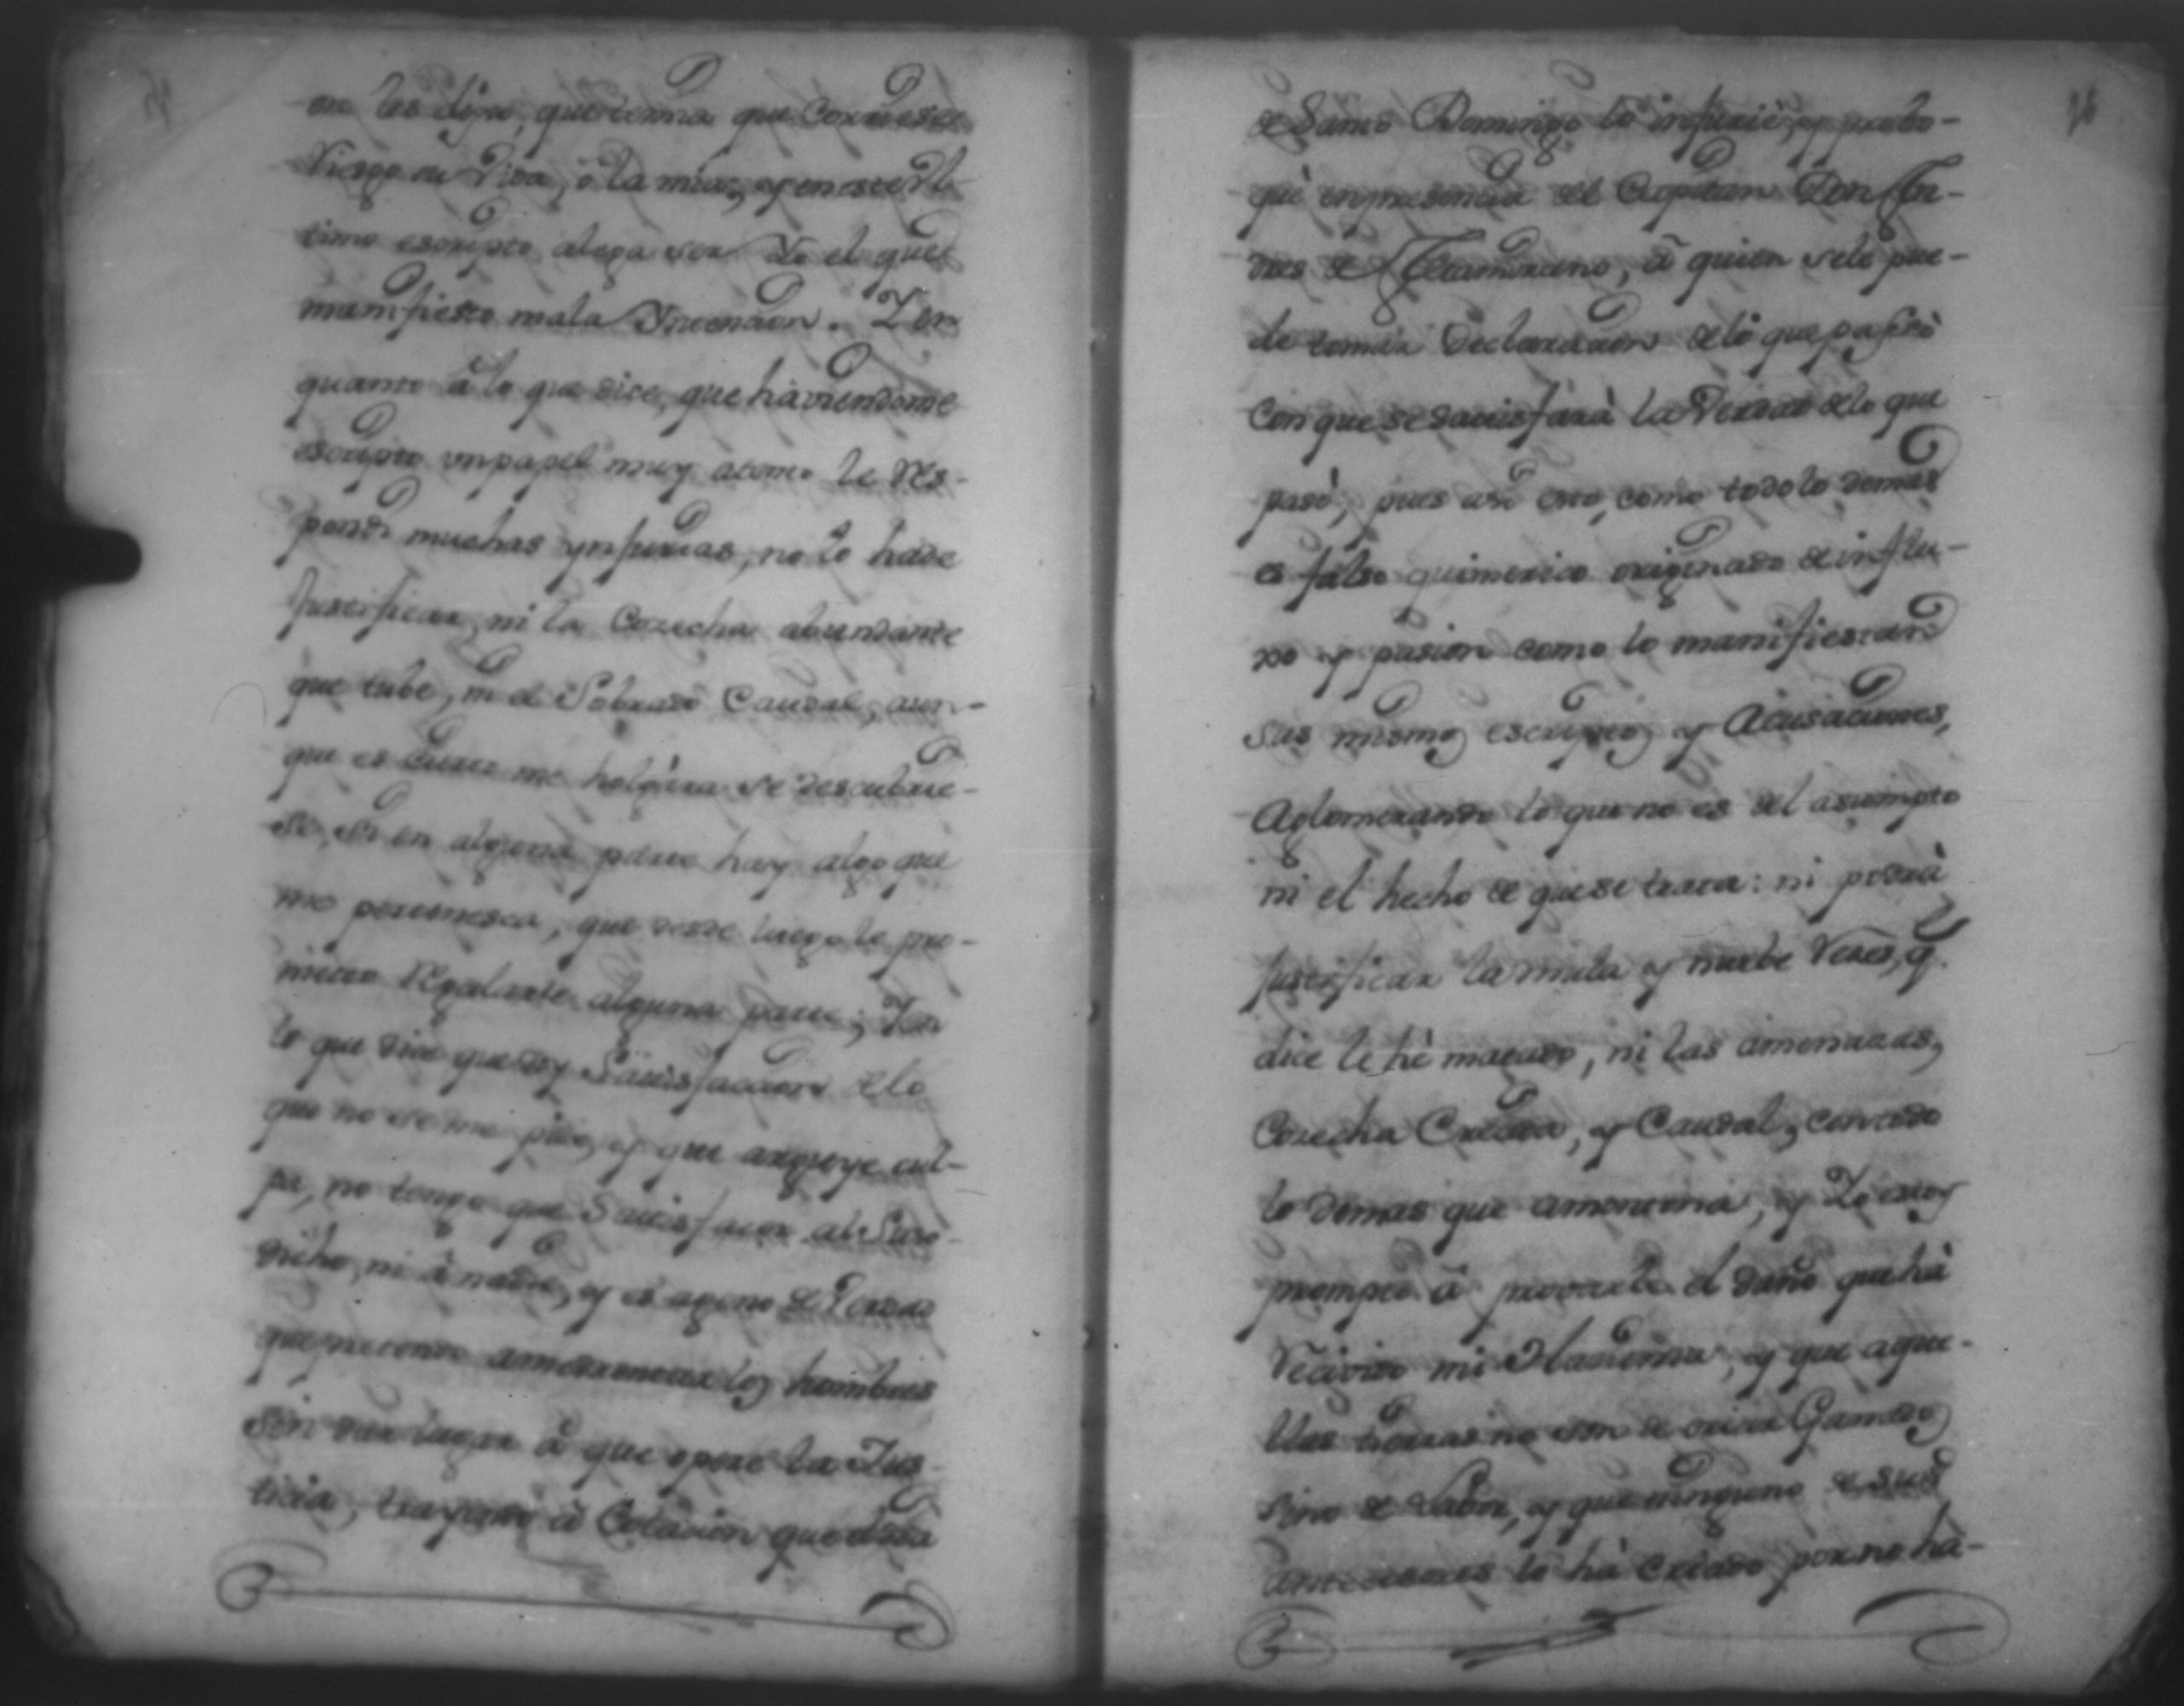 les dijo, que temia que corriesse
riesgo su vida, ô la mia, y en este ul-
timo escripto alega ser Yo el que
manifiesto mala Yntencion. Y en
quanto â lo que dice, que haviendome
escripto un papel muy atento le res-
pondi muchas ynjurias, no lo hade
justificar, ni la Cosecha abundante
que tube, ni el Sobrado Caudal, aun-
que es cierto me holgàra se descubrie-
se, si en alguna parte hay algo que
me pertenesca, que desde luego le pro-
meto Regalarle alguna parte; Y en
lo que dice que doy Satisfaccion de lo
que no se me pide, y que arguye cul-
pa, no tengo que Satisfacer al Suso-
dicho, ni â nadie, y es ageno de Verdad
que los hombres
sin dar lugar â que opere la Jus-
ticia, trayendo â Colacion que
de Santo Domingo lo injurié, y probo-
què en presencia del Capitan Don An-
dres de Altamirano, â quien se le pue-
de tomar Declaracion de lo que passò
Con que se satisfarà la Verdad de lo que
pasò, pues asi esto, como todo lo demas
es falso quimerico originado de influ-
xo y pasion como lo manifiestan
sus mismos escriptos y Acusaciones,
Aglomerando lo que no es del asumpto
ni el hecho de que se trata: ni podrà
justificar la mula y nuebe Reses, q.
dice le hè matado, ni las amenazas,
Cosecha Crecida, y Caudal, con todo
lo demas que amontona, y Yo estoy
prompto â provarle el daño que hà
Recivido mi Hazienda, y que aque-
llas tierras no son de criar Ganados
sino de Labor, y que ninguno de sus
antecesores lo hà criado por no ha-